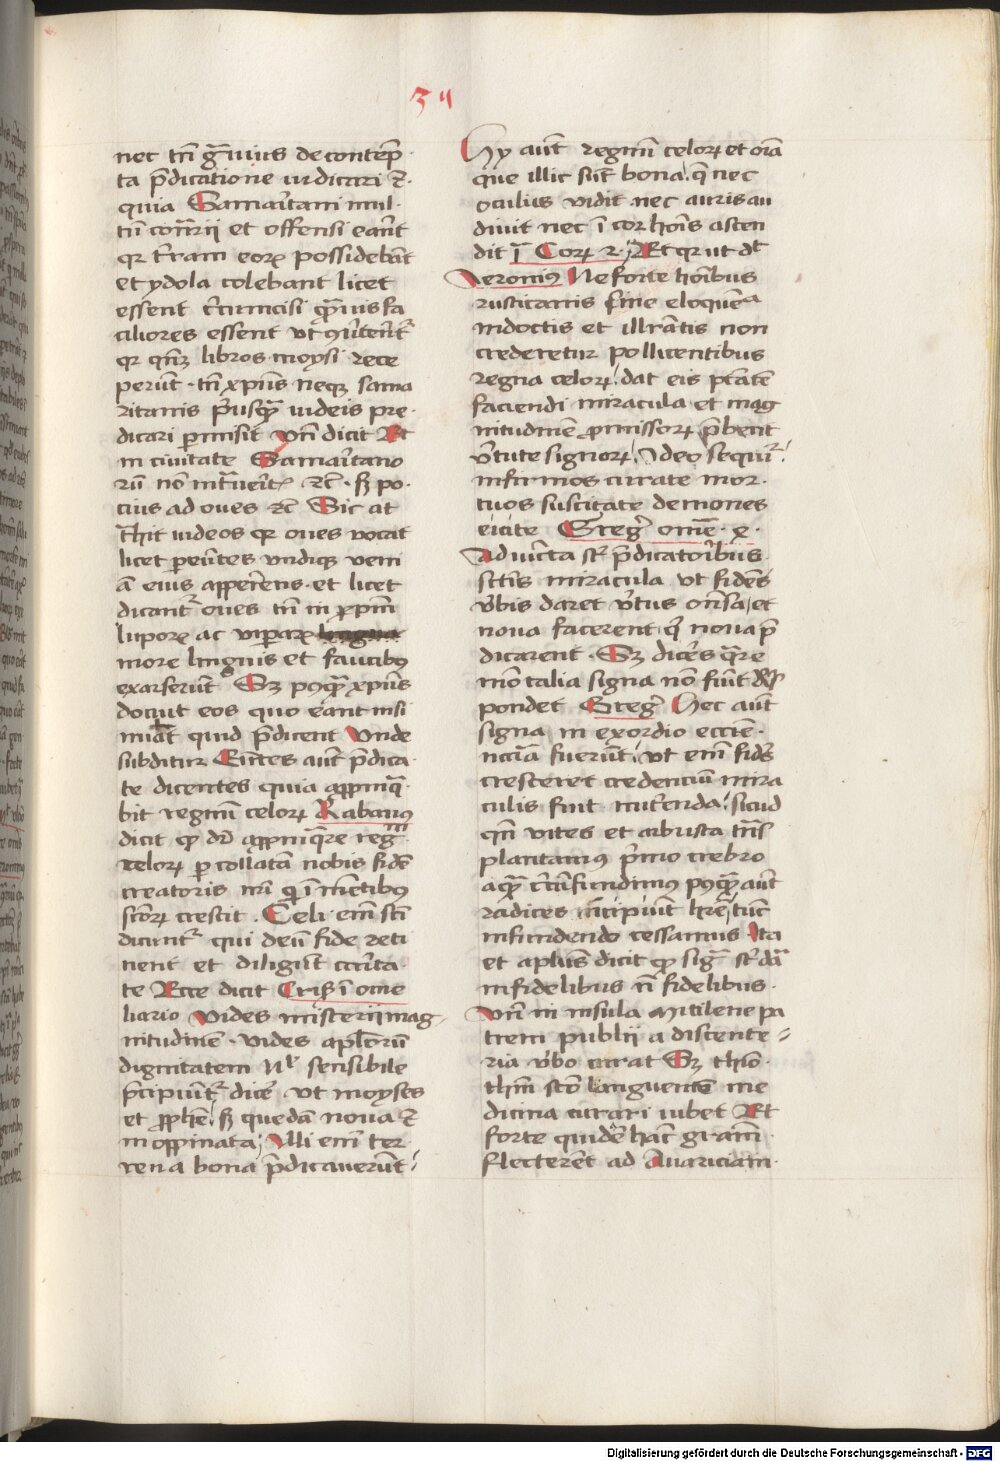 34
nec tn̄ gͣuius de contēp
ta p̄dicatione iudicari ⁊.
quia Samaritani mul-
tū cont̄rii et offensi eant̄
qr t̄ram eoꝝ possidebāt
et ydola colebant licet
essent circumcisi quāuis fa
ciliores essent vt ꝯuertent̄
qr libros moysi rece
perūt · tn̄ xpūs neqꝫ sama
ritanis p̄usqͣ iudeis pre-
dicari ꝑmisit vn̄ dicit Et
in ciuitate Samaritano
rū nō intͣueīt⁊ ⁊c̄ · sꝫ po-
cius ad oues ⁊c̄ Sic at
iudeos qr oues vocat
licet vndiqꝫ veni
ā eius et licet
dicant̄ oues tn̄ in xpm̄
lupoꝝ ac viꝑaꝝ
more linguis et faucibꝰ
exarserūt Sꝫ pꝰqͣ xpūs
docuit eos quo eant insi
nuat quid p̄dicent Vnde
subditur Eūtes aūt p̄dica-
te dicentes quia appinqͣ-
bit regnū celoꝝ Rabanꝰ
dicit ꝙ dr̄ appinqͣre regnū
celoꝝ ꝑ collatam nobis fidē
creatoris nr̄i ꝙ ī mētibꝰ
scōꝝ crescit · Celi em̄ scī
dicunt̄ qui deū fide reti
nent et diligūt carita-
te Ecce dicit Cris̄ ī ome
liario vides misterii mag-
nitudinē · vides aplōrū
dignitatem Nl̄ sensibile
p̄cipiūt̄ dicē vt moyses
et ꝓphē sꝫ quedā noua ⁊
inoppinata / Illi em̄ ter-
rena bona p̄dicauerūt /
Hy aūt regnū celoꝝ et oīa
que illic sūt bona q̄ nec
oculus vidit nec auris au
diuit nec ī cor hoīs ascen
dit ī Coꝝ 2 / Et qr ut dt̄
Ieronimꝰ Ne forte hoībus
rusticanis sine eloquēᵃ
indoctis et illr̄atis non
crederetur pollicentibus
regna celoꝝ / dat eis ptātē
faciendi miracula et mag
nitudinē ꝓmissoꝝ p̄bent
v̄tute signoꝝ / Ideo sequit̄ /
infirmos curate mor-
tuos suscitate demones
eicite Greḡ omē · x ·
Adiūcta st̄ p̄dicatoribus
sct̄is miracula vt fidēs
v̄bis daret v̄tus on̄sa / et
noua facerent q̄ noua p̄
dicarent · Sꝫ dices qͣre
mō talia signa nō fiūt Rn̄s
pondet Greḡ Hec aūt
signa in exordio eccīe
nccīa fuerūt / vt em̄ fides
cresceret credenciū mira
culis fuit nutrienda / sicud
qn̄ vites et arbusta
plantamꝰ p̄mo crebro
aqͣ circūfundimꝰ pꝰqͣ aūt
radices incipiūt hr̄e / tūc
infundendo cessamus Ita
et aplūs dicit ꝙ sigͣ st̄ dāͣ
infidelibus nō fidelibus ·
Vn̄ in insula Mitilene pa
trem publii a discente-
ria v̄bo curat Sꝫ thiō-
thm̄ scō languentē me
dicina curari iubet Et
forte quidē hāc grām
flecterēt ad Auariciam ·
Digitalisierung gefördert durch die Deutsche Forschungsgemeinschaft - DFG